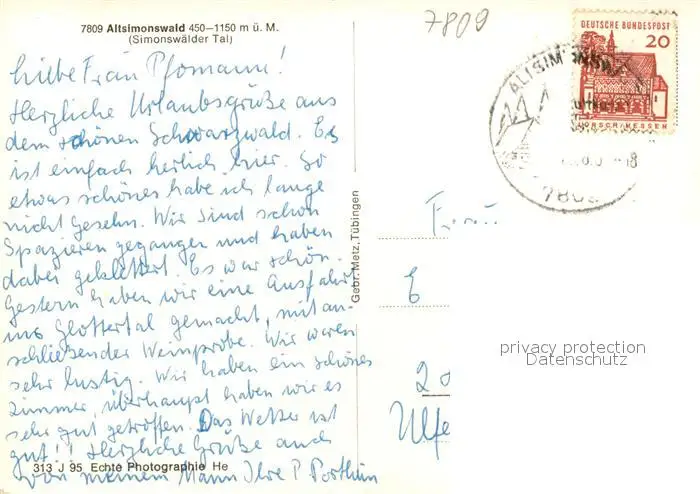 7809 Altsimonswald 450–1150 m ü. M.
(Simonswälder Tal)
7809
DEUTSCHE BUNDESPOST
20
LORSCH/HESSEN
Frau Pfomann!
Herzliche Urlaubsgrüße aus
dem schönen Schwarzwald. Es
ist einfach herlich hier. So
etwas schönes habe ich lange
nicht Gesehn. Wir sind schon
Spazieren gegangen und haben
dabei geklettert. Es war schön.
Gestern haben wir eine Ausfahrt
ins Glottertal gemacht, mit an-
schließender Weinprobe. Wir waren
sehr lustig. Wir haben ein schönes
Zimmer, überhaupt haben wir es
sehr gut getroffen. Das Wetter ist
gut!! Herzliche Grüße auch
von meinem Mann Ihre P. Porthun
313 J 95 Echte Photographie He
Gebr. Metz, Tübingen
Frau
privacy protection
Datenschutz